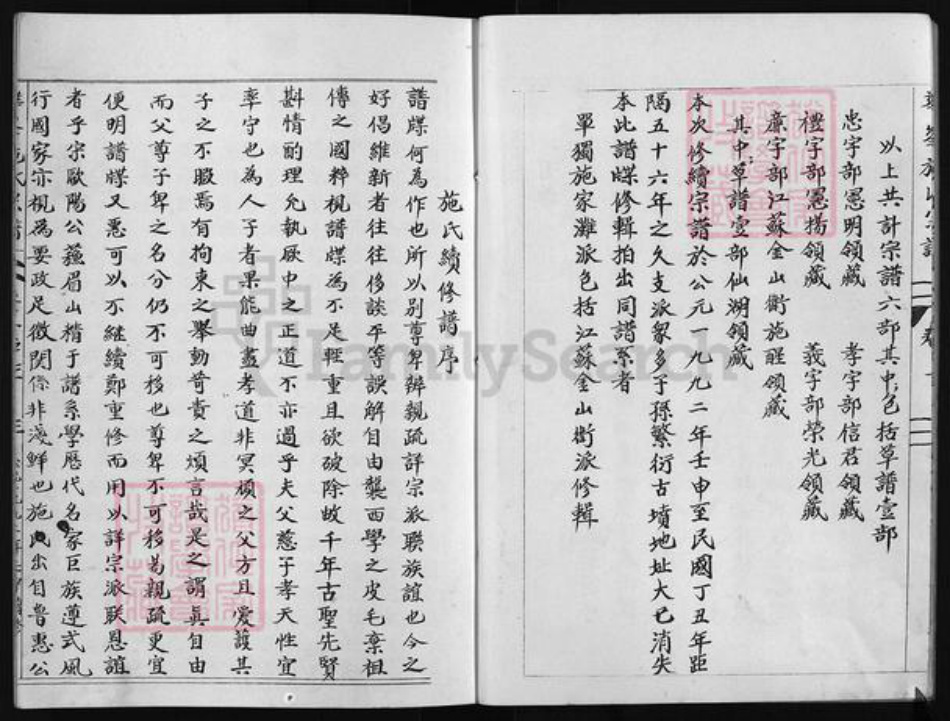 以上共計宗譜六部其中包括草譜壹部
忠字部憲明領藏 孝字部信君領藏
禮字部憲揚領藏 義字部榮光領藏
廉字部江蘇金山衛施醒領藏
其中草譜壹部仙湖領藏
本次修續宗譜於公元一九九二年壬申至民國丁丑年距
隔五十六年之久支派眾多子孫繁衍古墳地址大已消失
本此譜牒修輯拍出同譜系者
單獨施家灘派包括江蘇金山衛派修輯
施氏續修譜序
譜牒何為作也所以別尊卑辨親疏詳宗派聯族誼也今之
好倡維新者往往侈談平等誤解自由襲西學之皮毛棄祖
傳之國粹視譜牒為不足輕重且欲破除故千年古聖先賢
斟情酌理允執厥中之正道不亦過乎夫父慈子孝天性宜
率守也為人子者果能曲盡孝道非冥頑之父方且愛護其
子之不暇焉有拘束之舉動苛責之煩言哉是之謂真自由
而父尊子卑之名分仍不可移也尊卑不可移為親疏更宜
便明譜牒又惡可以不繼續鄭重修而用以詳宗派联恩誼
者乎宗歐陽公蘓眉山精于譜系學歷代名家巨族遵式風
行國家亦視為要政足徵関係非淺鮮也施氏出自魯惠公
FamilySearch